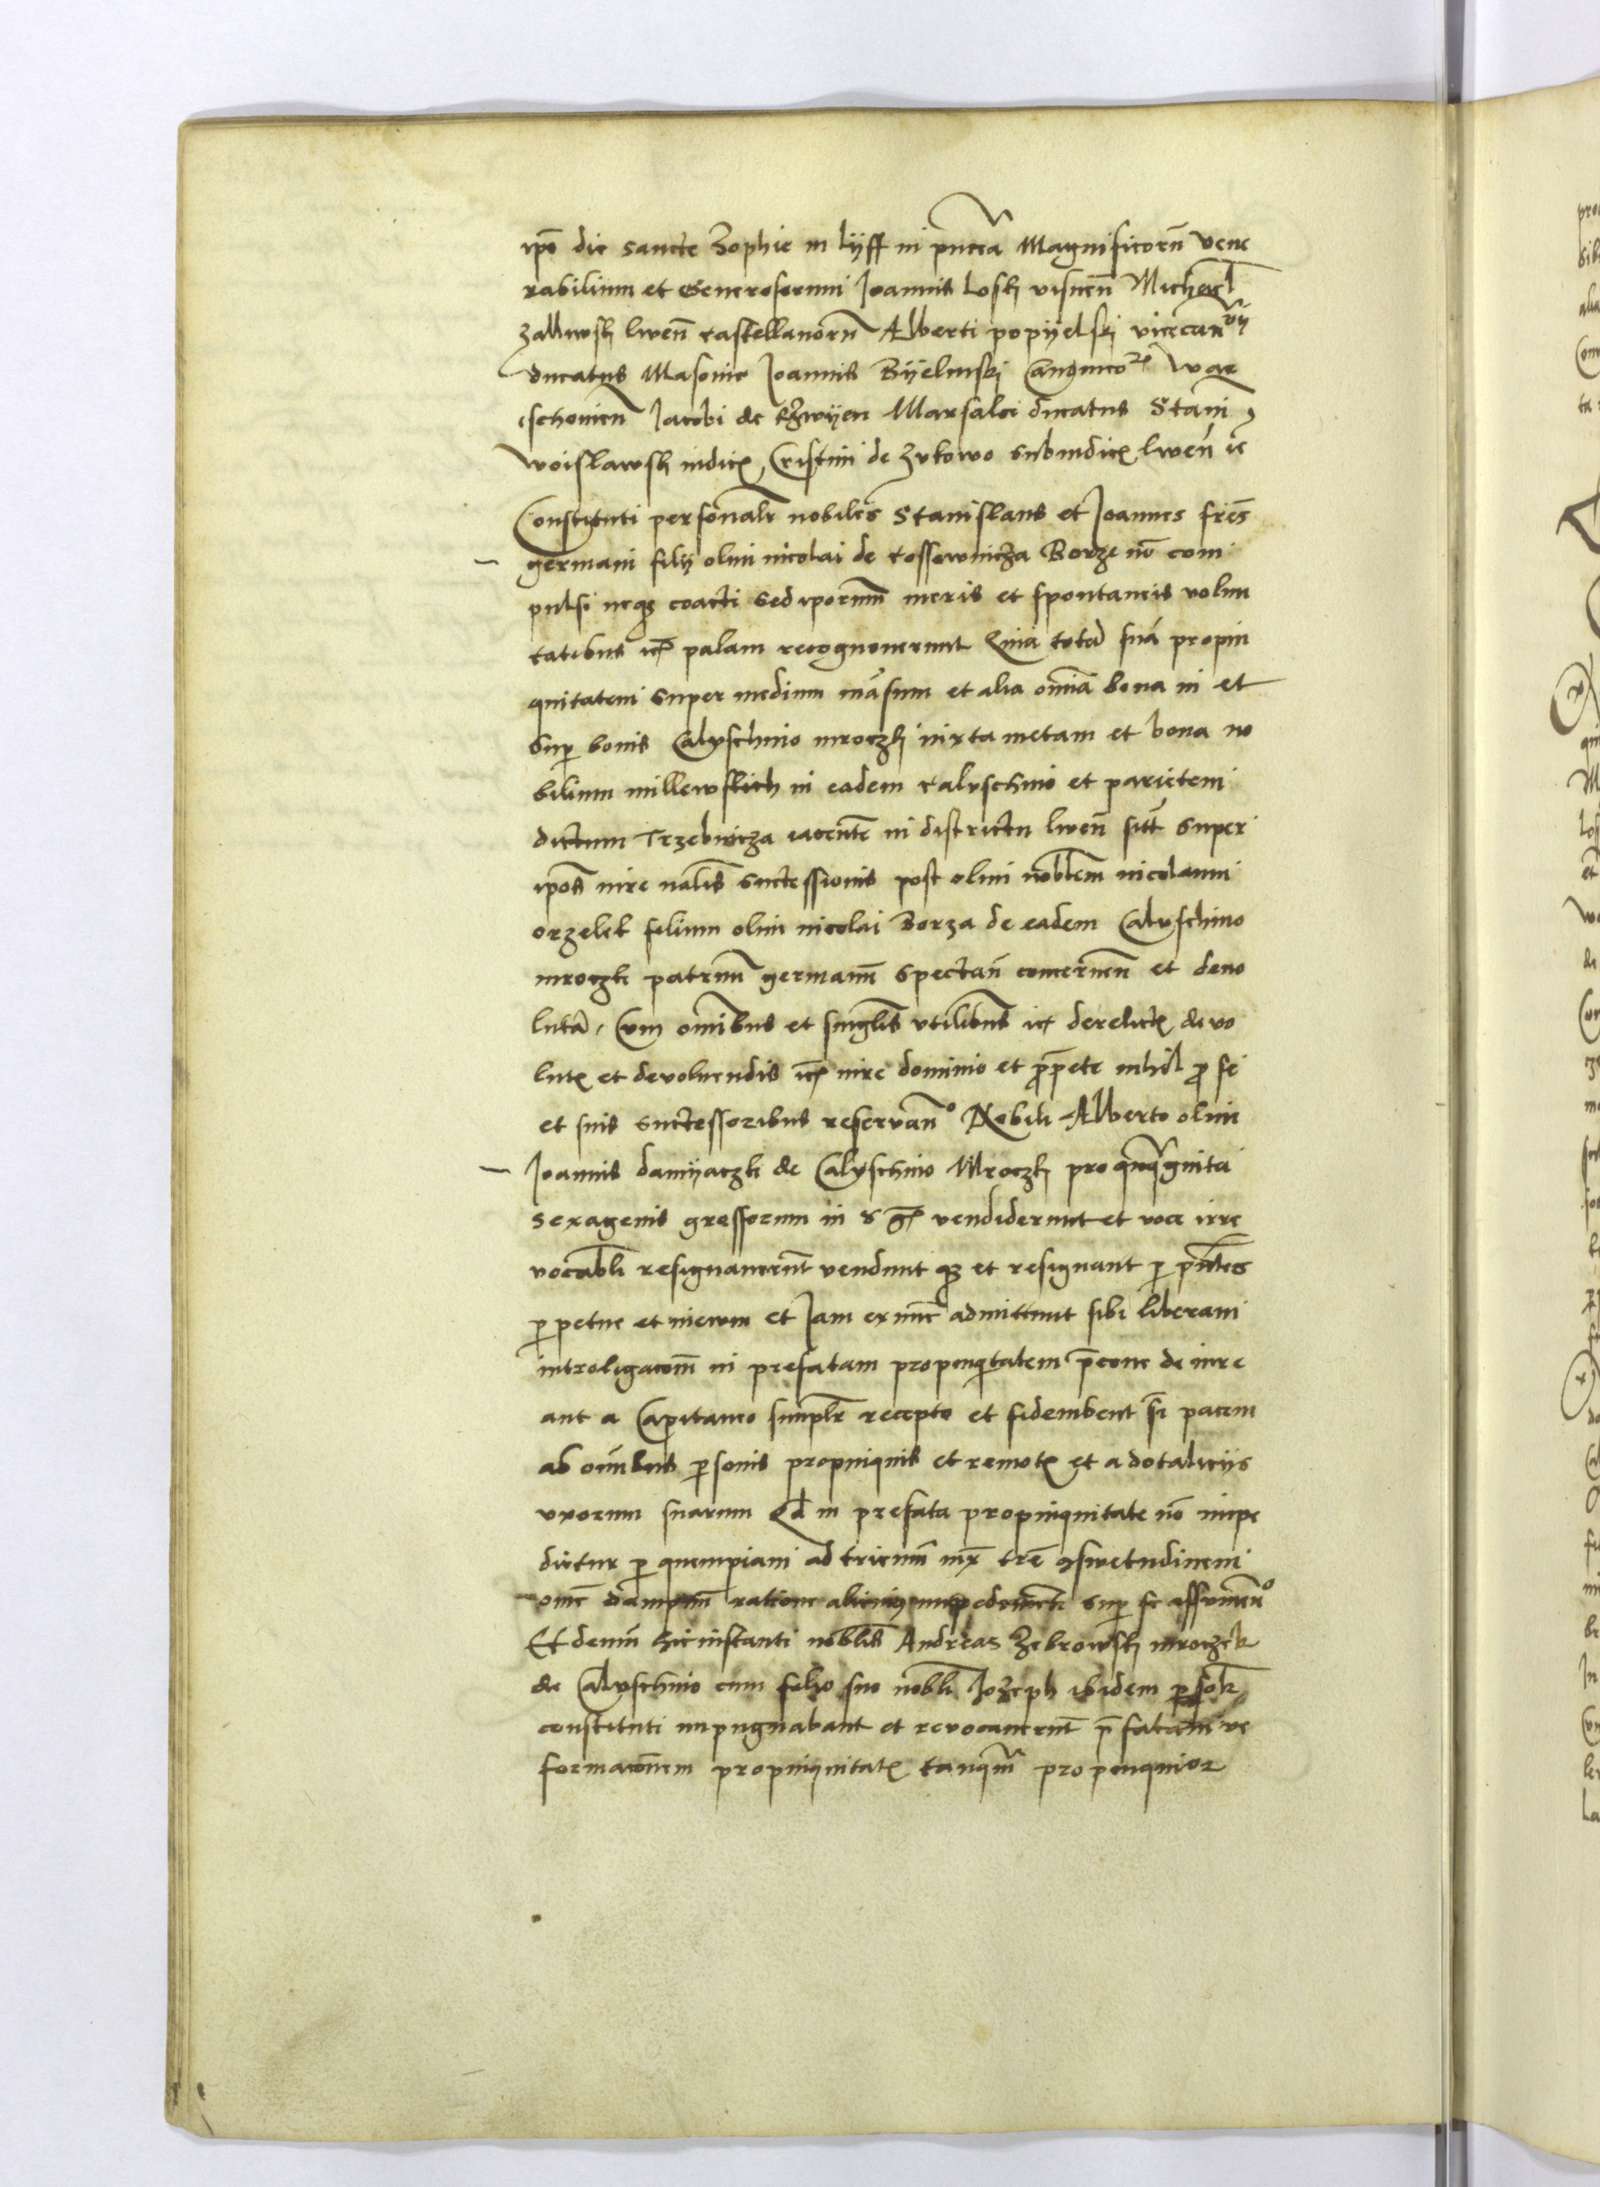 ipō die sancte Zophie in lyff in pn̄cia Magnificorū vene
rabilium et Generosorum Joannis Losk visnen̄ Michael
lwen̄ castellanorū Alberti popyelski vicecan
ducatus Masovie Joannis Byelinski Canonico War
schovien̄ Jacobi de Marsalci ducatus Stani
woislawsk iudic Cristini de Zukowo subiudic lwen̄ ic
Constituti personalr nobiles Stanislaus et Joannes frēs
germani filij olim nicolai de cossewnicza Borze nō com
pulsi neq coacti sed ipor meris et spontaneis volun
tatibus ic palam recognoverunt Quia totā suā propin
quitatem super medium māsum et alia omīa bona in et
sup bonis Caluschino mroczk iuxta metam et bona no
bilium millewskich in eadem caluschino et parietem
dictum Trzebnicza iacentē in districtu lwen̄ sitt super
ipos iure nalis successionis post olim noblem nicolaum
orzelek filium olim nicolai Borza de eadem Caluschino
mroczki patruū germanū spectan̄ concernen̄ et devo
luta, Cum omibus et singlis utilibus ic derelict devo
lut et devoluendis ic iure dominio et pprete nihil p se
et suis successoribus reservan̄o Nobili Alberto olim
Joannis damyaczki de Caluschino Mroczk pro
sexagenis grossorum in vendiderunt et voce irre
vocabli resignaverūt vendunt q et resignant p pntes
p petue et in ewm et Jam ex nūc admittunt sibi liberam
introligacom in prefatam propinqtatem pcone de iure
aut a Capitaneo simplr recepto et fideiubent sꝫ pacem
ab omībus p sonis propinquis et remot et a dotaliciis
uxorum suarum Qd in prefata propinquitate nō impe
dietur p quempiam ad trienniū iux trē gswetudinem
omē dampnum ratione alicui impedimēti sup se assumen̄o
Et demū hic instanti noblis Andreas Zebrowsk mroczek
de Caluschino cum felio suo nobli Jozeph ibidem p solr
constituti impugnabant et revocaverūt p fatam re
formaconem propinquitat tanqm propinquior